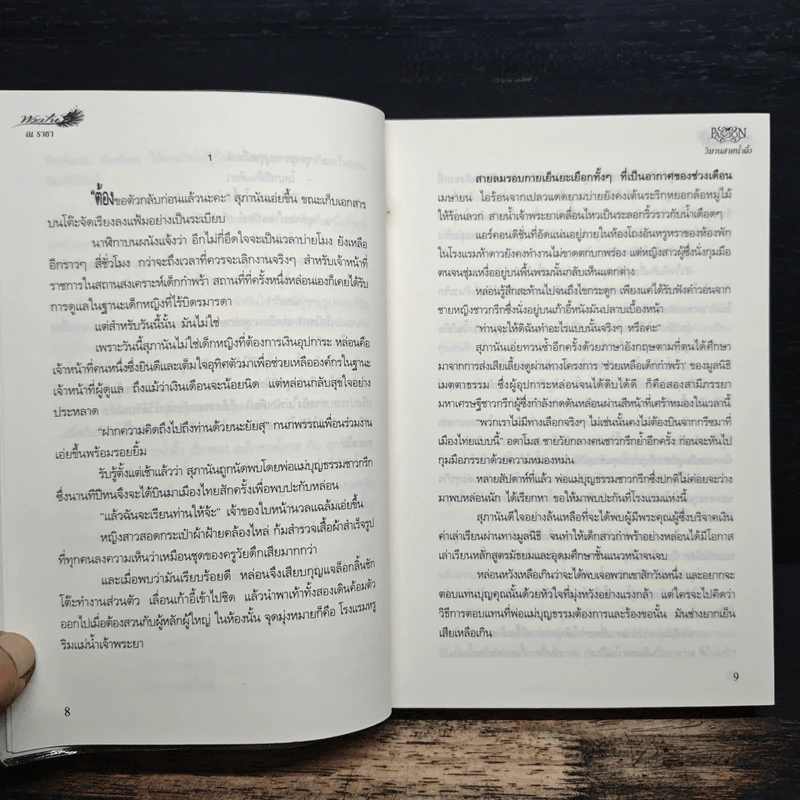 ณ ราธา
1
"ต้องขอตัวกลับก่อนแล้วนะคะ" สุภานันเอ่ยขึ้น ขณะเก็บเอกสาร
บนโต๊ะจัดเรียงลงแฟ้มอย่างเป็นระเบียบ
นาฬิกาบนผนังแจ้งว่า อีกไม่กี่อึดใจจะเป็นเวลาบ่ายโมง ยังเหลือ
อีกราวๆ สี่ชั่วโมง กว่าจะถึงเวลาที่ควรจะเลิกงานจริงๆ สำหรับเจ้าหน้าที่
ราชการในสถานสงเคราะห์เด็กกำพร้า สถานที่ที่ครั้งหนึ่งหล่อนเองก็เคยได้รับ
การดูแลในฐานะเด็กหญิงที่ไร้บิดรมารดา
แต่สำหรับวันนี้นั้น มันไม่ใช่
เพราะวันนี้สุภานันไม่ใช่เด็กหญิงที่ต้องการเงินอุปการะ หล่อนคือ
เจ้าหน้าที่คนหนึ่งซึ่งยินดีและเต็มใจอุทิศตัวมาเพื่อช่วยเหลือองค์กรในฐานะ
เจ้าหน้าที่ผู้ดูแล ถึงแม้ว่าเงินเดือนจะน้อยนิด แต่หล่อนกลับสุขใจอย่าง
ประหลาด
"ฝากความคิดถึงไปถึงท่านด้วยนะยัยสุ" กนกพรรณเพื่อนร่วมงาน
เอ่ยขึ้นพร้อมรอยยิ้ม
รับรู้ตั้งแต่เช้าแล้วว่า สุภานันถูกนัดพบโดยพ่อแม่บุญธรรมชาวกรีก
ซึ่งนานทีปีหนจึงจะได้บินมาเมืองไทยสักครั้งเพื่อพบปะกับหล่อน
"แล้วฉันจะเรียนท่านให้จ้ะ" เจ้าของใบหน้านวลแฉล้มเอ่ยขึ้น
หญิงสาวสอดกระเป๋าผ้าฝ้ายคล้องไหล่ ก้มสำรวจเสื้อผ้าสำเร็จรูป
ที่ทุกคนลงความเห็นว่าเหมือนชุดของครูวัยดึกเสียมากกว่า
และเมื่อพบว่ามันเรียบร้อยดี หล่อนจึงเสียบกุญแจล็อกลิ้นชัก
โต๊ะทำงานส่วนตัว เลื่อนเก้าอี้เข้าไปชิด แล้วนำพาเท้าทั้งสองเดินค้อมตัว
ออกไปเมื่อต้องสวนกับผู้หลักผู้ใหญ่ ในห้องนั้น จุดมุ่งหมายก็คือ โรงแรมหรู
ริมแม่น้ำเจ้าพระยา
8
PASSION
วิมานสายน้ำผึ้ง
สายลมรอบกายเย็นยะเยือกทั้งๆ ที่เป็นอากาศของช่วงเดือน
เมษายน ไอร้อนจากเปลวแดดยามบ่ายยังคงเต้นระริกหยอกล้อหมู่ไม้
ให้ร้อนลวก สายน้ำเจ้าพระยาเคลื่อนไหวเป็นระลอกริ้วราวกับน้ำเดือดๆ
แอร์คอนดิชั่นที่อัดแน่นอยู่ภายในห้องโถงอันหรูหราของห้องพัก
ในโรงแรมห้าดาวยังคงทำงานไม่ขาดตกบกพร่อง แต่หญิงสาวผู้ซึ่งนั่งกุมมือ
ตนจนชุ่มเหงื่ออยู่บนพื้นพรมนั้นกลับเห็นแตกต่าง
หล่อนรู้สึกสะท้านไปจนถึงไขกระดูก เพียงแค่ได้รับฟังคำวอนจาก
ชายหญิงชาวกรีกซึ่งนั่งอยู่บนเก้าอี้หนังมันปลาบเบื้องหน้า
"ท่านจะให้ดิฉันทำอะไรแบบนั้นจริงๆ หรือคะ"
สุภานันเอ่ยทวนซ้ำอีกครั้งด้วยภาษาอังกฤษตามที่ตนได้ศึกษา
มาจากการส่งเสียเลี้ยงดูผ่านทางโครงการ 'ช่วยเหลือเด็กกำพร้า' ของมูลนิธิ
เมตตาธรรม ซึ่งผู้อุปการะหล่อนจนได้ดิบได้ดี ก็คือสองสามีภรรยา
มหาเศรษฐีชาวกรีกผู้ซึ่งกำลังกดดันหล่อนผ่านสีหน้าที่เศร้าหมองในเวลานี้
"พวกเราไม่มีทางเลือกจริงๆ ไม่เช่นนั้นคงไม่ต้องบินจากกรีซมาที่
เมืองไทยแบบนี้" อดาโมส ชายวัยกลางคนชาวกรีกย้ำอีกครั้ง ก่อนจะหันไป
กุมมือภรรยาด้วยความหมองหม่น
หลายสัปดาห์ที่แล้ว พ่อแม่บุญธรรมชาวกรีกซึ่งปกติไม่ค่อยจะว่าง
มาพบหล่อนนัก ได้เรียกหา ขอให้มาพบปะกันที่โรงแรมแห่งนี้
สุภานันดีใจอย่างล้นเหลือที่จะได้พบผู้มีพระคุณผู้ซึ่งบริจาคเงิน
ค่าเล่าเรียนผ่านทางมูลนิธิ จนทำให้เด็กสาวกำพร้าอย่างหล่อนได้มีโอกาส
เล่าเรียนหลักสูตรมัธยมและอุดมศึกษาชั้นแนวหน้าจนจบ
หล่อนหวังเหลือเกินว่าจะได้พบเจอพวกเขาสักวันหนึ่ง และอยากจะ
ตอบแทนบุญคุณนั้นด้วยหัวใจที่มุ่งหวังอย่างแรงกล้า แต่ใครจะไปคิดว่า
วิธีการตอบแทนที่พ่อแม่บุญธรรมต้องการและร้องขอนั้น มันช่างยากเย็น
เสียเหลือเกิน
9